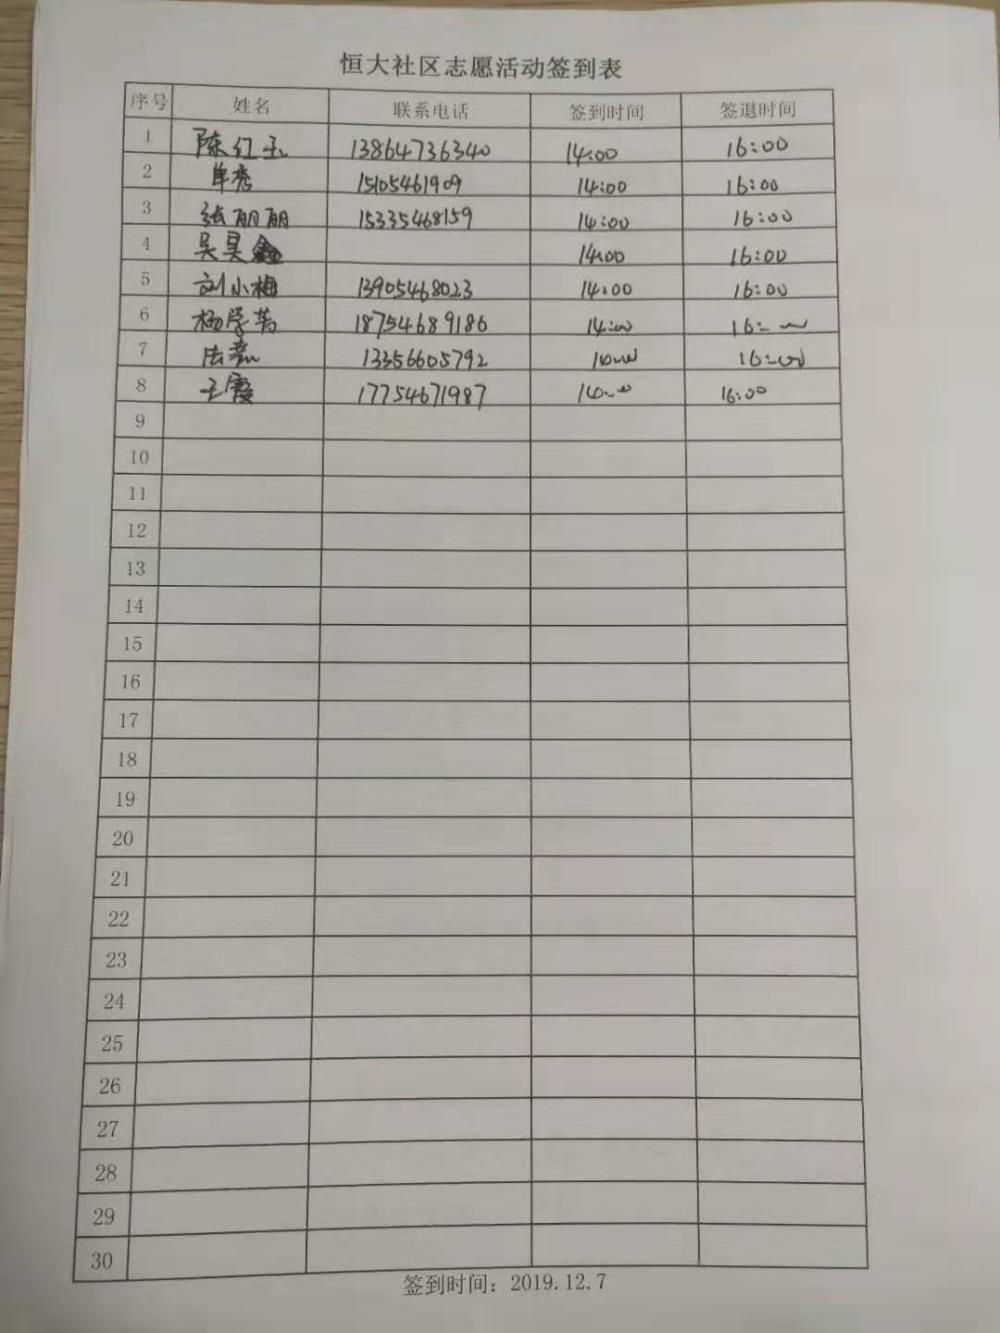 恒大社区志愿活动签到表
序号 姓名 联系电话 签到时间 签退时间
1 陈红玉 13864736340 14:00 16:00
2 单秀 15105461909 14:00 16:00
3 张丽丽 15335468159 14:00 16:00
4 吴昊鑫 14:00 16:00
5 刘小梅 13905468023 14:00 16:00
6 杨学芳 18754689186 14:00 16:00
7 13356605792 16:00
8 王霞 17754671987 14:00 16:00
9
10
11
12
13
14
15
16
17
18
19
20
21
22
23
24
25
26
27
28
29
30
签到时间：2019.12.7